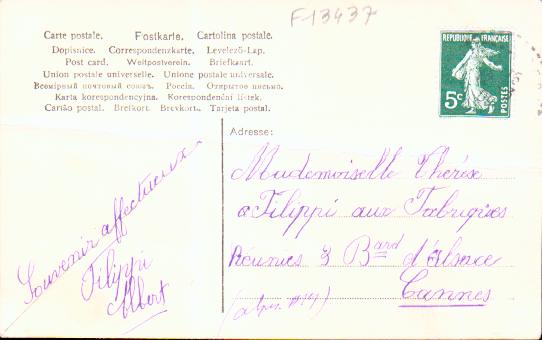 F13437
Carte postale. Postkarte. Cartolina postale.
Dopisnice. Correspondenzkarte. Levelező-Lap.
Post card. Weltpostverein. Briefkaart.
Union postale universelle. Unione postale universale.
Всемірный почтовый союзъ. Россія. Открытое письмо.
Karta korespondencyjna. Korespondenční lístek.
Cartão postal. Brefkort. Brevkort. Tarjeta postal.
REPUBLIQUE FRANÇAISE
5c
POSTES
Adresse:
Mademoiselle Thérèse
Filippi aux Fabriques
Réunies 3 Bard d'Alsace
Cannes
(alpes
Souvenir affectueux
Filippi
Albert